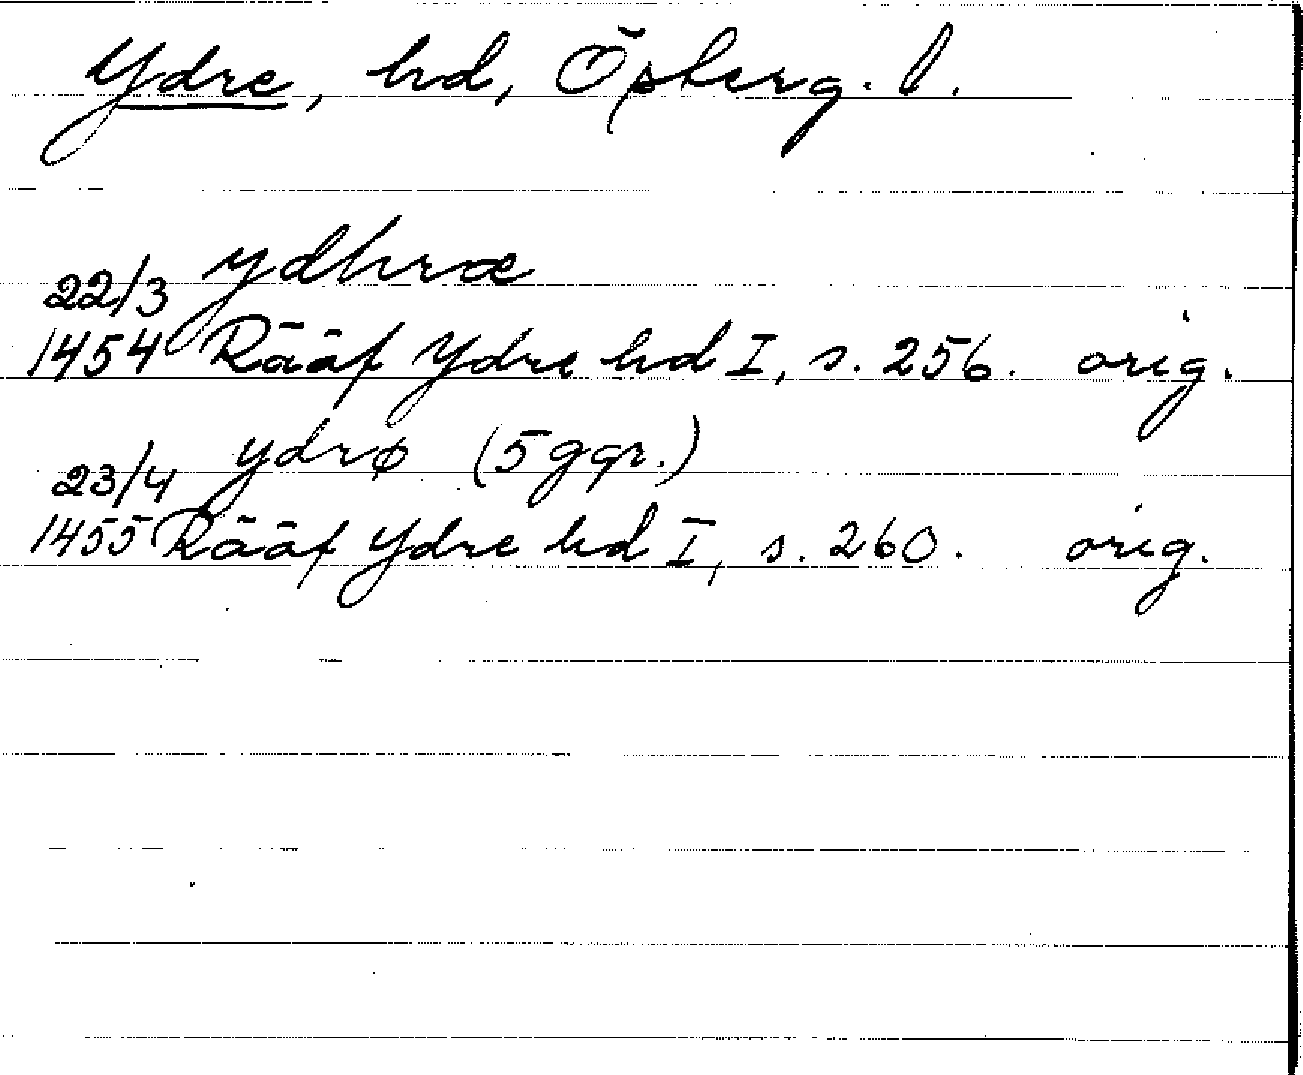 Ydre, hd, Östberg. l.
ydhræ
22/3
1454 Rääf Ydre hd I, s. 256. orig.
ydrø (5 ggr.)
23/4
1455 Rääf Ydre hd I, s. 260. orig.